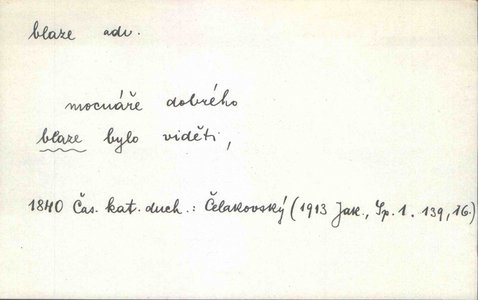 blaze adv.
mocnáře dobrého
blaze bylo viděti,
1840 Čas. kat. duch.: Čelakovský (1913 Jak., Sp. 1. 139, 16.)